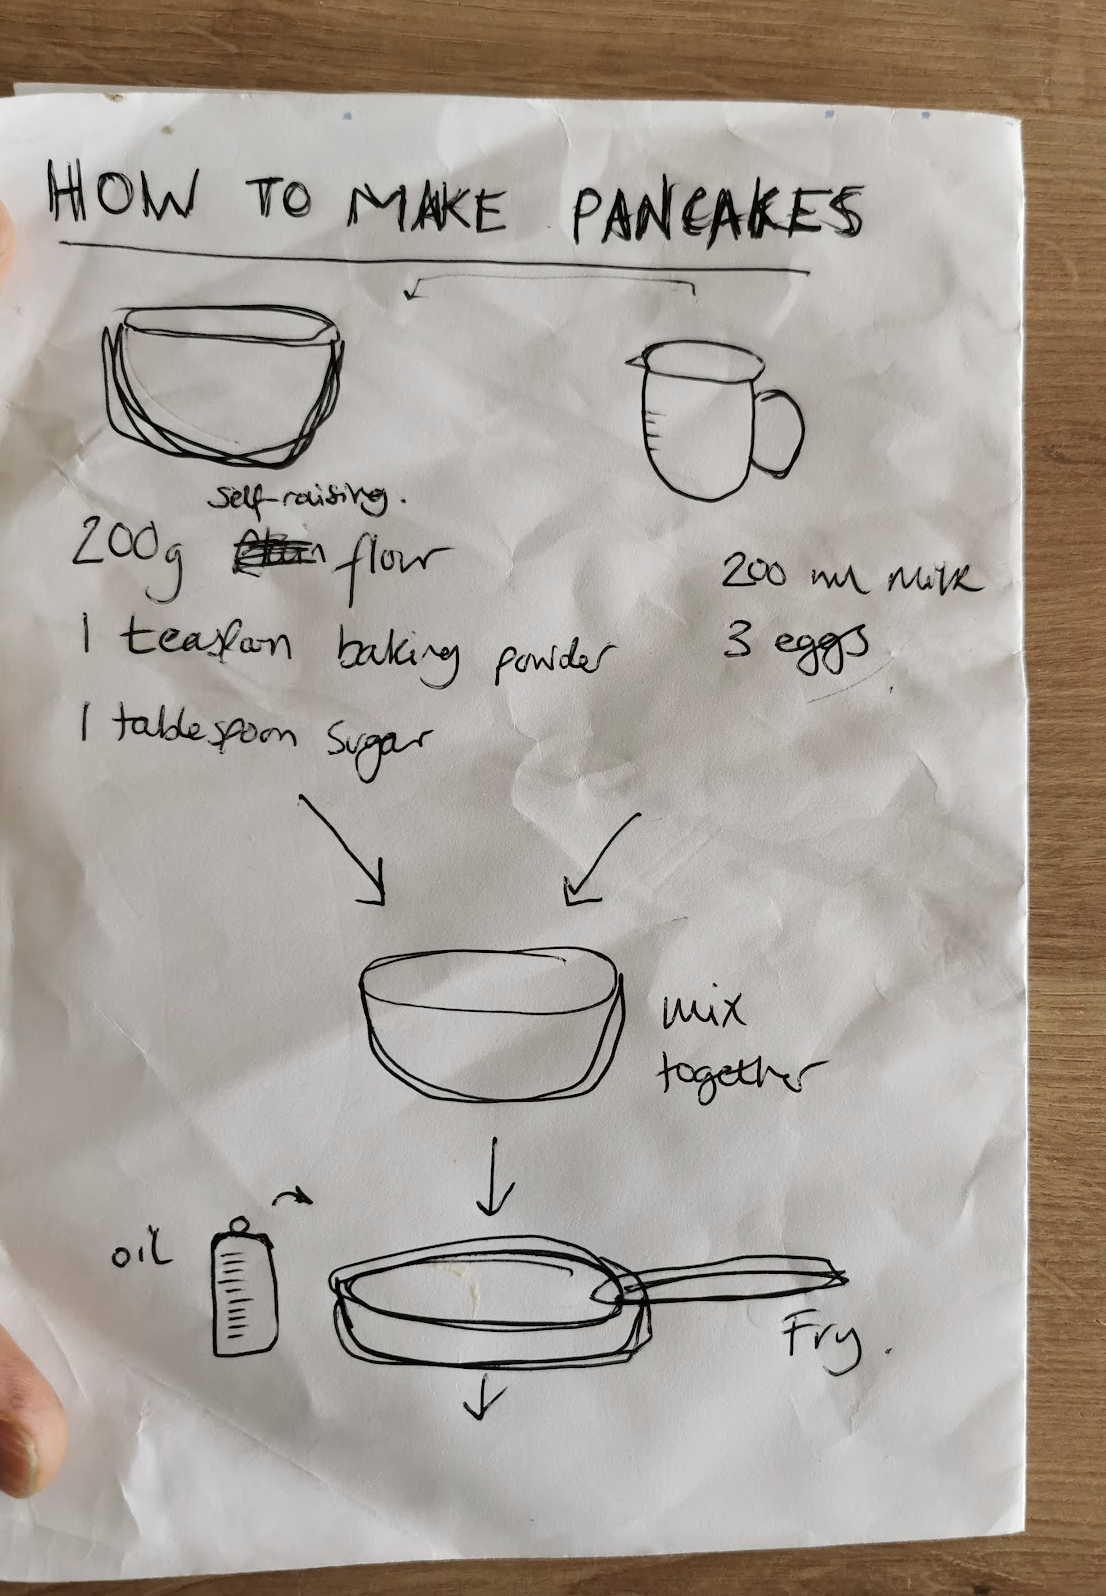 HOW TO MAKE PANCAKES
self-raising.
200g flour
1 teaspoon baking powder
1 tablespoon sugar
200 ml milk
3 eggs
mix
together
oil
Fry.